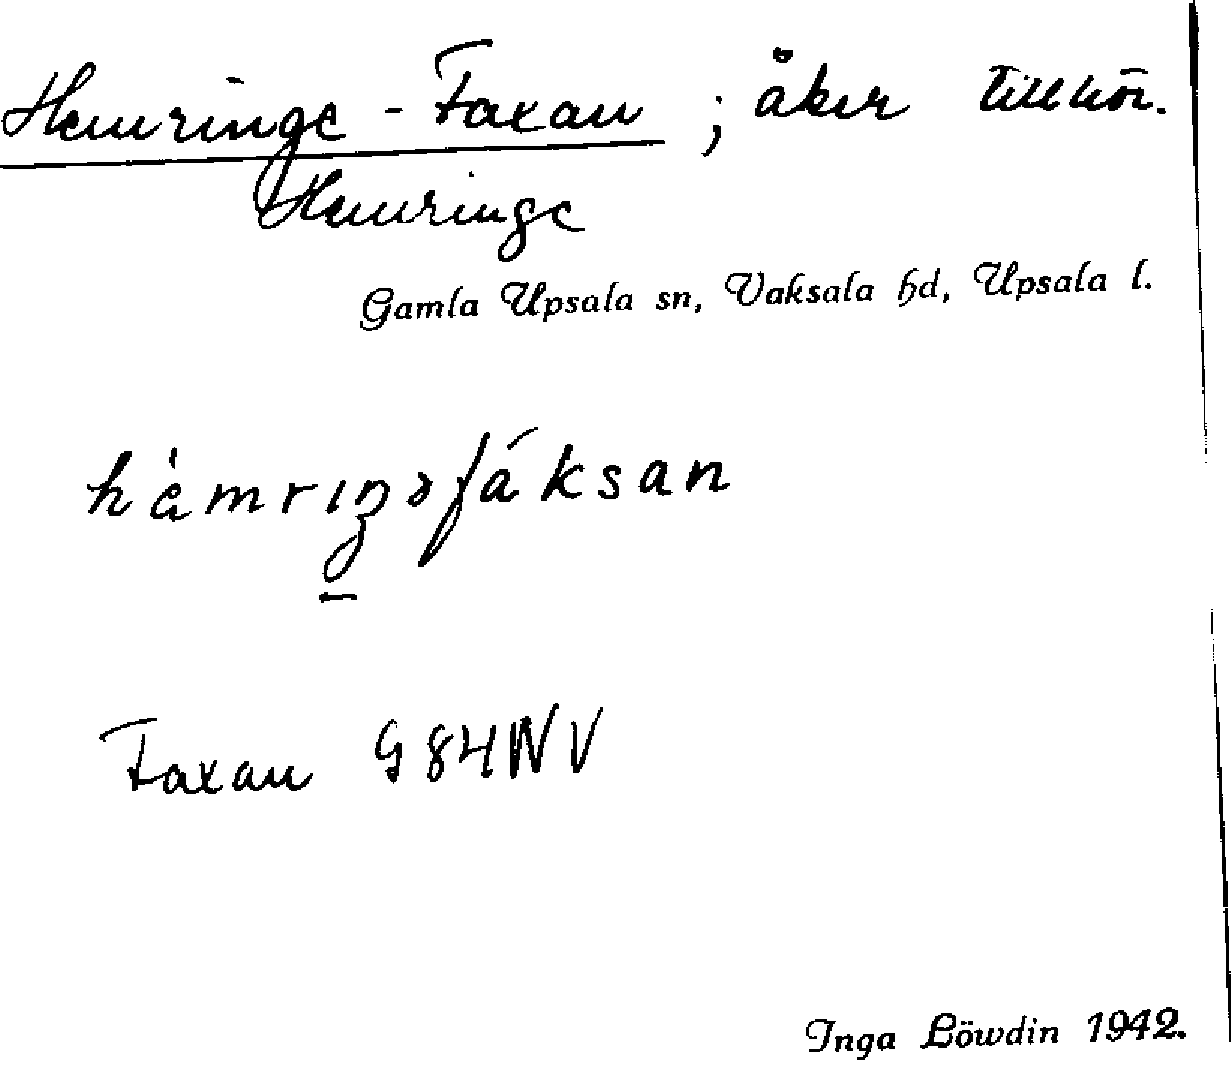 Hemringe - Faxan ; åker tillhör.
Hemringe
Gamla Upsala sn, Vaksala hd, Upsala l.
hàmrıŋəfáksan
Faxan G84NV
Inga Löwdin 1942.